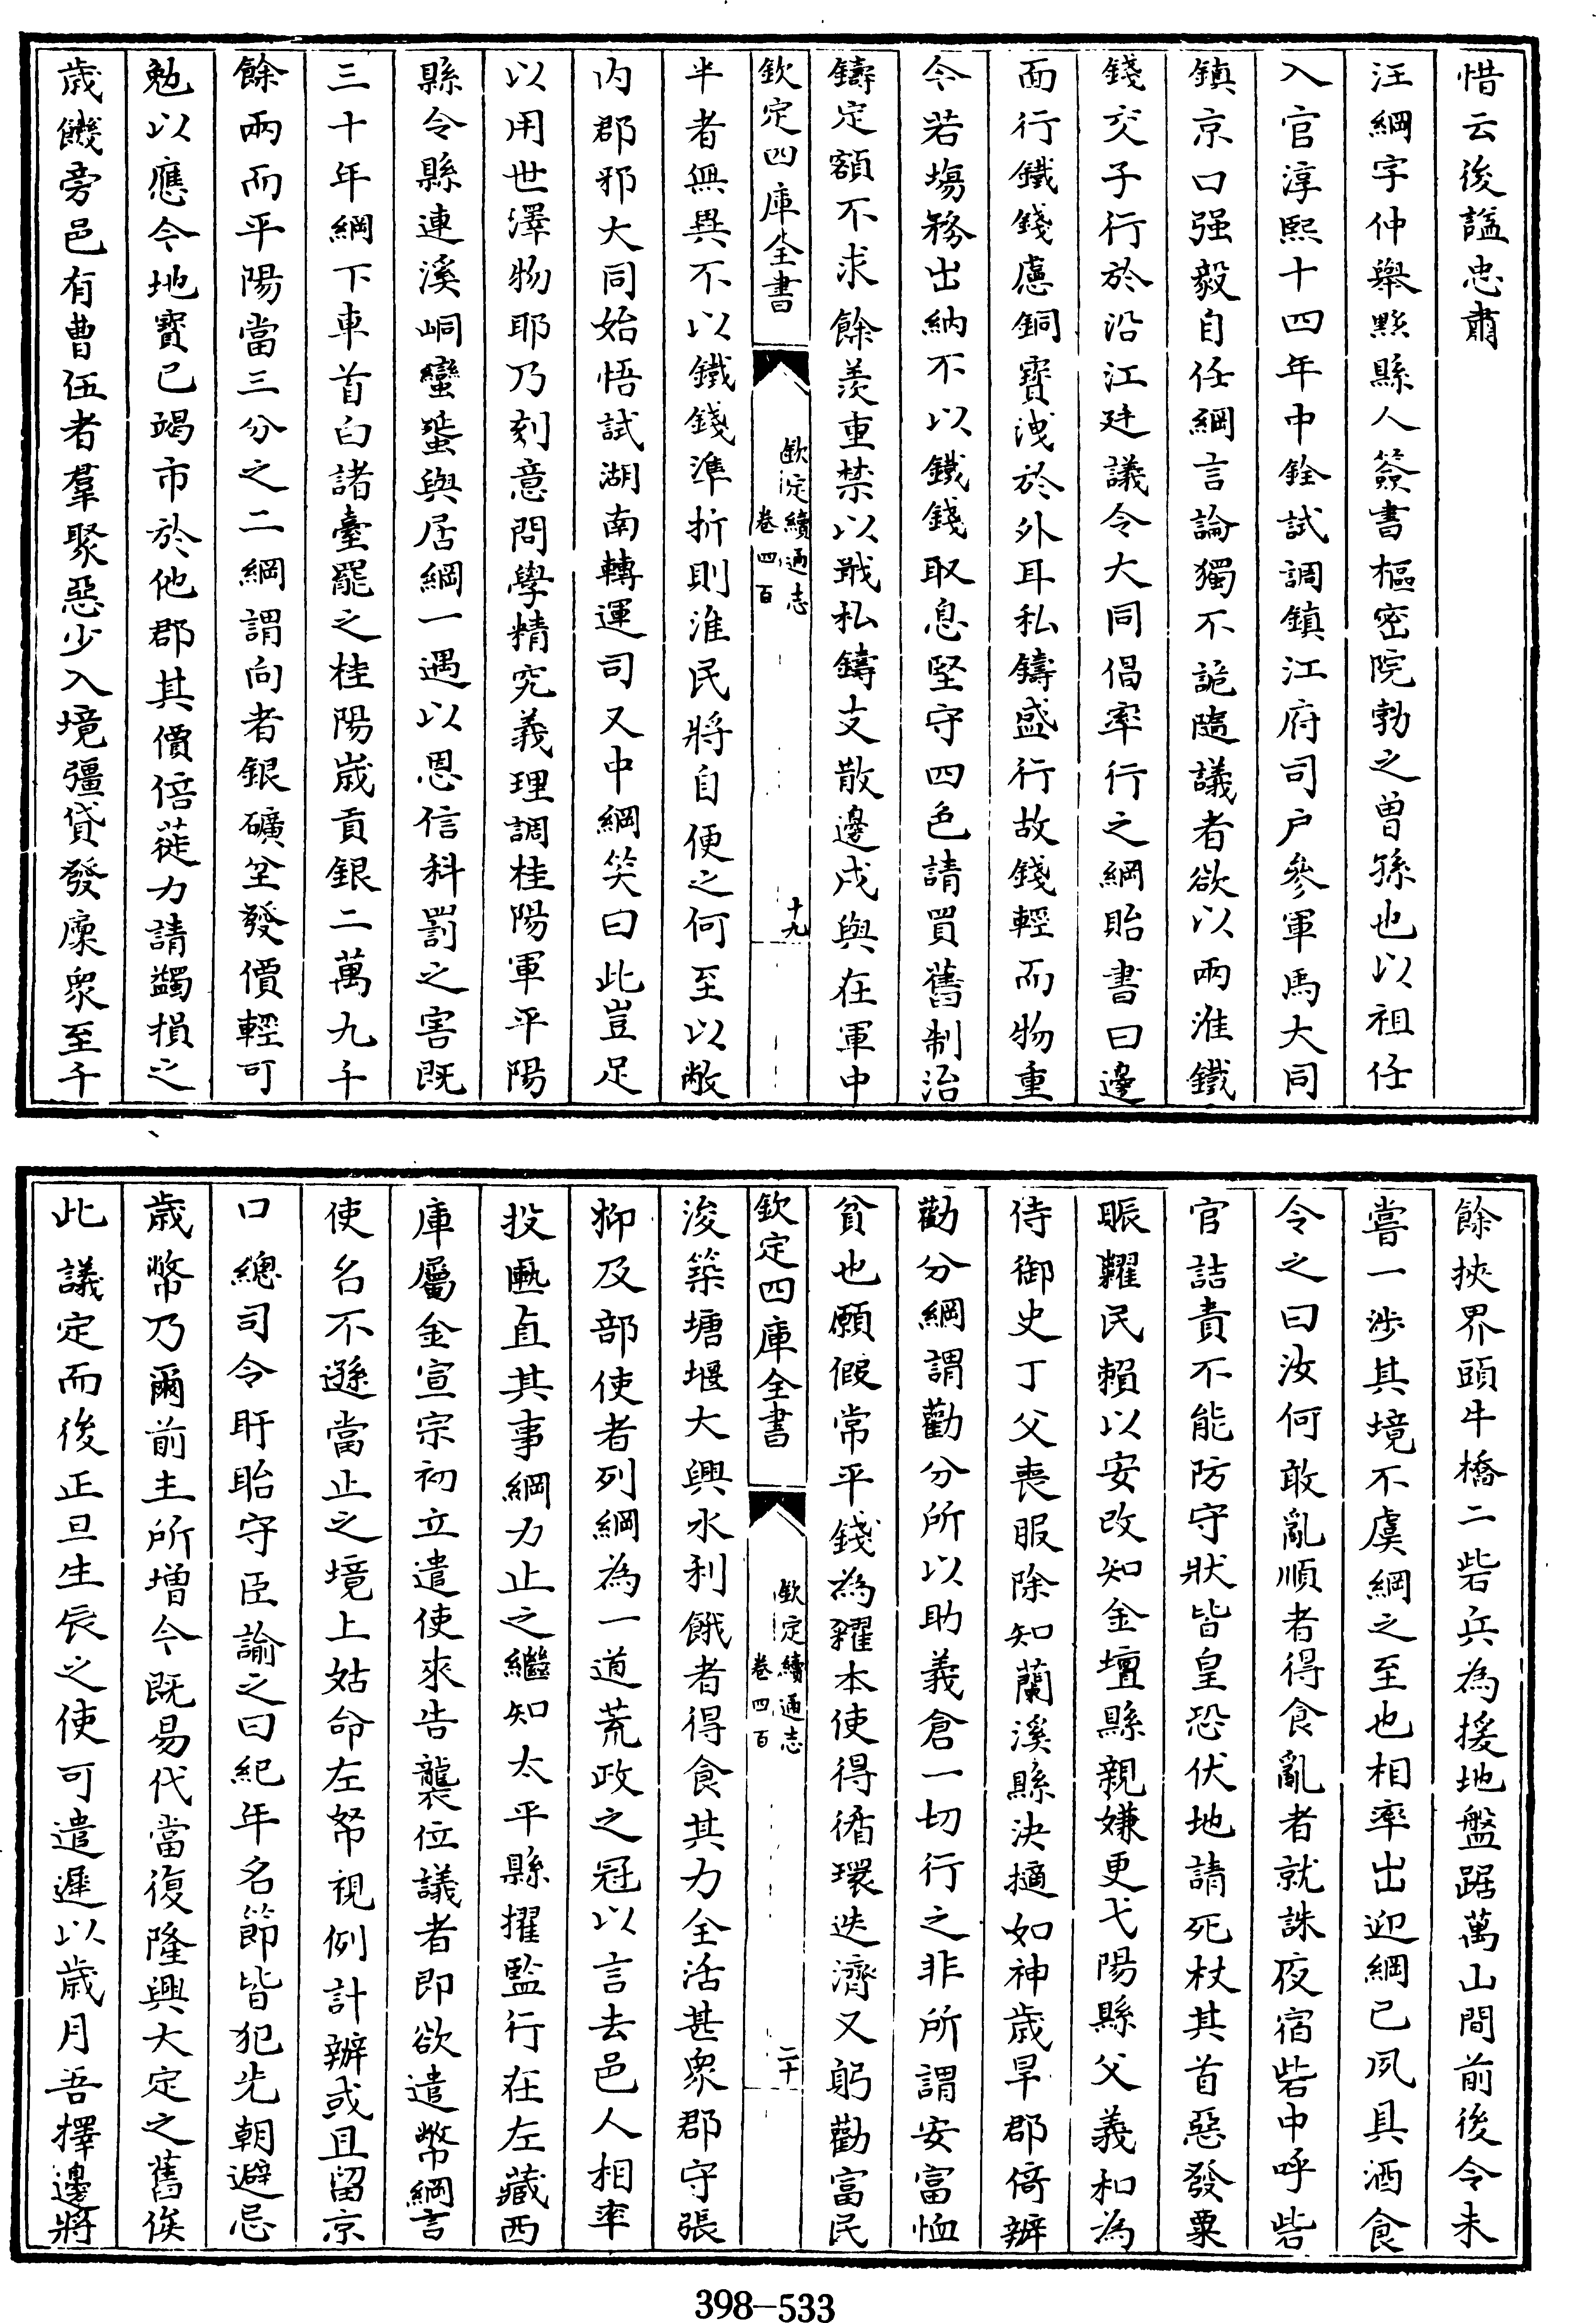 惜云後諡忠肅
汪綱字仲舉黟縣人簽書樞密院勃之曽孫也以祖任
入官淳熙十四年中銓試調鎮江府司户參軍馬大同
鎮京口强毅自任綱言論獨不詭隨議者欲以兩淮鐵
錢交子行於沿江廷議令大同倡率行之綱貽書曰邊
面行鐵錢慮銅寶洩於外耳私鑄盛行故錢輕而物重
今若塲務出納不以鐵錢取息堅守四色請買舊制治
鑄定額不求餘羨重禁以戢私鑄支散邊戍與在軍中
欽定四庫全書
欽定續通志
卷四百
十九
半者無異不以鐵錢準折則淮民將自便之何至以敝
内郡邪大同始悟試湖南轉運司又中綱笑曰此豈足
以用世澤物耶乃刻意問學精究義理調桂陽軍平陽
縣令縣連溪峒蠻蜑與居綱一遇以恩信科罰之害既
三十年綱下車首白諸臺罷之桂陽嵗貢銀二萬九千
餘兩而平陽當三分之二綱謂向者銀礦坌發價輕可
勉以應令地寳已竭市於他郡其價倍蓰力請蠲損之
歳饑旁邑有曹伍者羣聚惡少入境彊貸發廩衆至千
餘挾界頭牛橋二砦兵為援地盤踞萬山間前後令未
嘗一涉其境不虞綱之至也相率出迎綱已夙具酒食
令之曰汝何敢亂順者得食亂者就誅夜宿砦中呼砦
官詰責不能防守狀皆皇恐伏地請死杖其首惡發粟
賑糶民賴以安改知金壇縣親嫌更弋陽縣父義和為
侍御史丁父喪服除知蘭溪縣決擿如神歳旱郡倚辦
勸分綱謂勸分所以助義倉一切行之非所謂安富恤
貧也願假常平錢為糴本使得循環迭濟又躬勸富民
欽定四庫全書
欽定續通志
卷四百
二十
浚築塘堰大興水利餓者得食其力全活甚衆郡守張
抑及部使者列綱為一道荒政之冠以言去邑人相率
投匭直其事綱力止之繼知太平縣擢監行在左藏西
庫屬金宣宗初立遣使來告襲位議者即欲遣幣綱言
使名不遜當止之境上姑命左帑視例計辦或且留京
口總司令盱眙守臣諭之曰紀年名節皆犯先朝避忌
歳幣乃爾前主所增今既易代當復隆興大定之舊俟
此議定而後正旦生辰之使可遣遲以歳月吾擇邊將
398—533